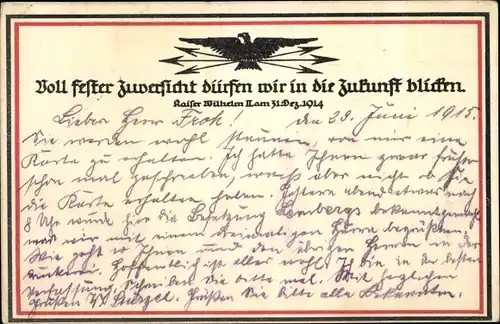 Voll fester Zuversicht dürfen wir in die Zukunft blicken.
Kaiser Wilhelm II. am 31. Dez. 1914
Lieber Herr Froh! den 23. Juni 1915.
Sie werden wohl staunen, von mir eine
Karte zu erhalten. Ich hatte Ihnen zwar früher
schon mal geschrieben, weiss aber nicht ob Sie
die Karte erhalten haben. Gestern abend etwas nach
8 Uhr wurde hier die Besetzung Lembergs bekanntgemacht
was wir mit einem dreimaligen Hurra begrüßten.
Wie geht es Ihnen und den übrigen Herren in der
Hoffentlich ist alles wohl. Ich bin in der besten
Verfassung. Schreiben Sie bitte mal. Mit herzlichen
Grüßen Grüßen Sie bitte alle Bekannten.